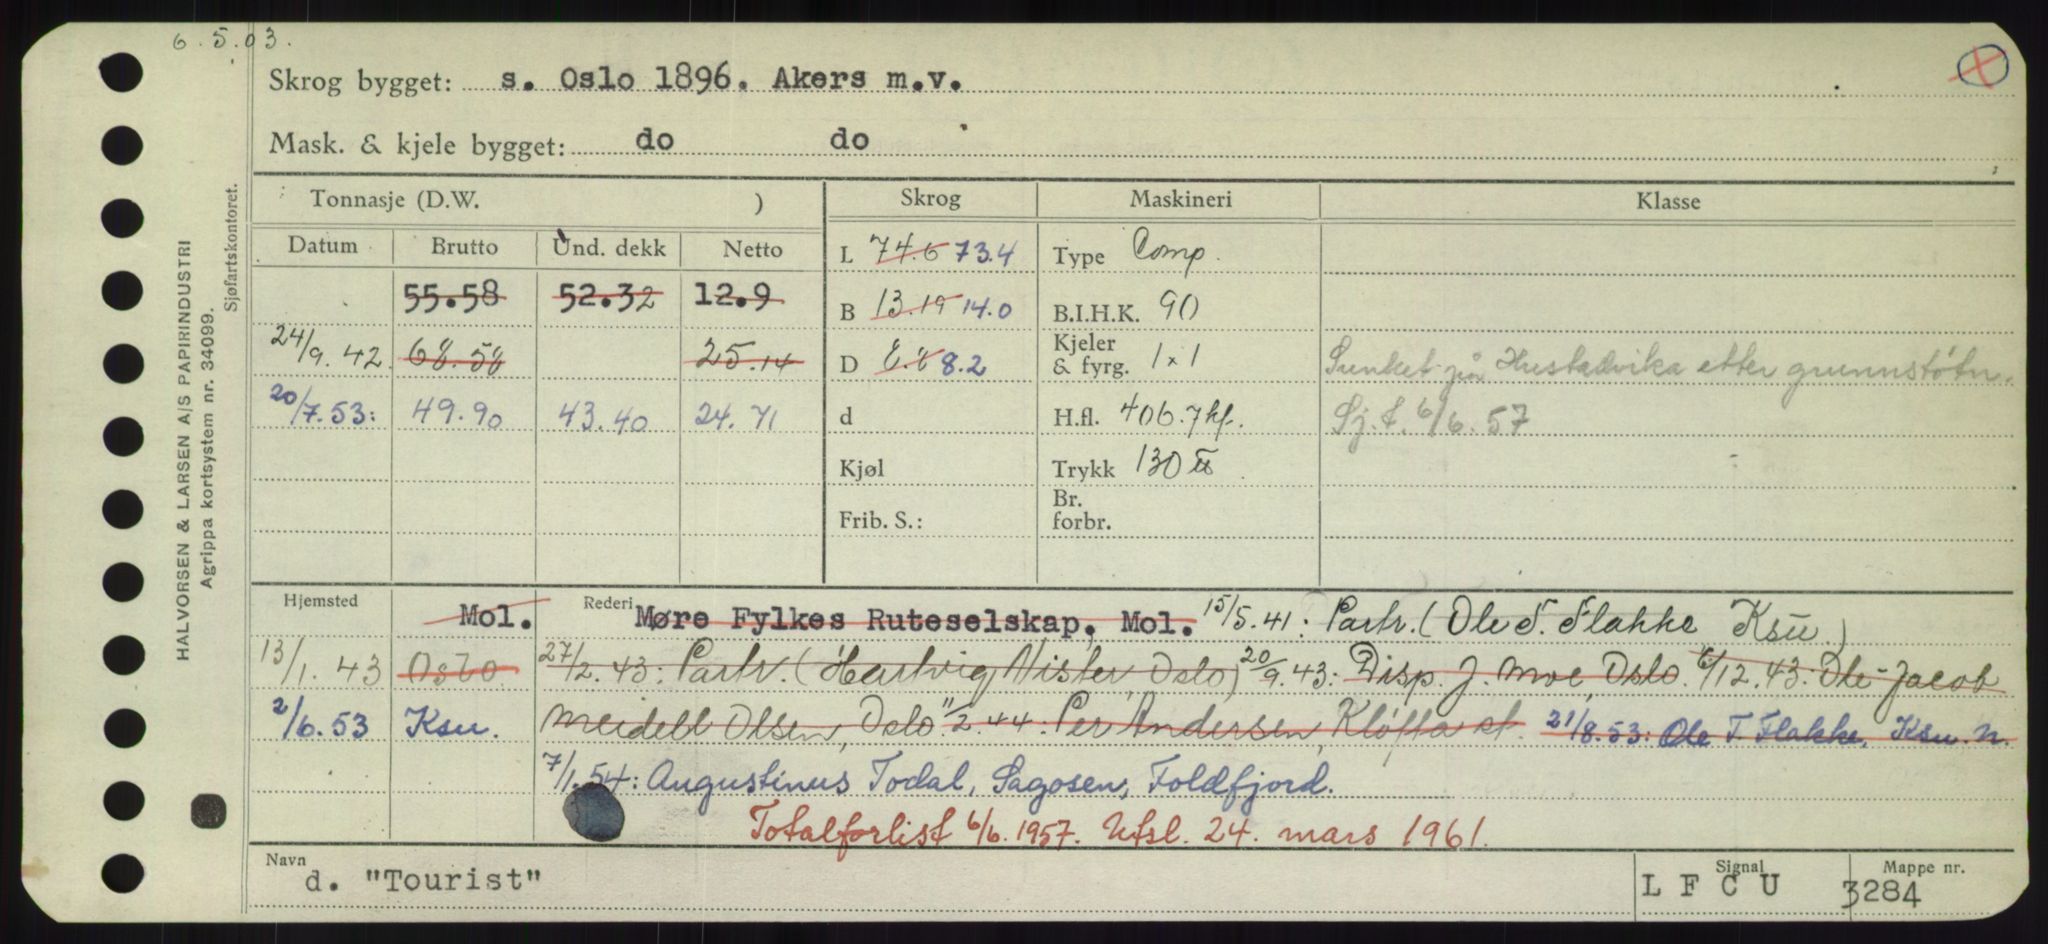 6.5.03.
Skrog bygget: s. Oslo 1896. Akers m.v.
Mask. & kjele bygget: do do
HALVORSEN & LARSEN A/S PAPIRINDUSTRI
Agrippa kortsystem nr. 34099.
Sjøfartskontoret.
Tonnasje (D.W. ) Skrog Maskineri Klasse
Datum Brutto Und. dekk Netto
L 74.6 73.4 Type Comp.
55.58 52.32 12.9
B 13.19 14.0 B.I.H.K. 90
24/9.42 68.58 25.14
D 8.2 Kjeler & fyrg. 1x1
Sunket på Hustadvika etter grunnstøtn.
20/7.53: 49.90 43.40 24.71
d H.fl. 406.7 kf. Sj.f. 6/6.57
Kjøl Trykk 130 ℔
Frib. S.: Br. forbr.
Hjemsted Mol. Rederi Møre Fylkes Ruteselskap, Mol. 15/5.41: Partr. (Ole T. Flakke Ksu.)
13/1.43 Oslo 27/2.43: Partr. (Hartvig Nister, Oslo) 20/9.43: Disp. J. Moe, Oslo. 6/12.43: Ole-Jacob
2/6.53 Ksu. Meidell Olsen, Oslo 11/2.44: Per Andersen, Kløfta st. 21/8.53: Ole T. Flakke, Ksu. N.
7/1.54: Augustinus Todal, Sagosen, Foldfjord.
Totalforlist 6/6.1957. Utsl. 24. mars 1961.
Navn d. "Tourist" Signal L F C U Mappe nr. 3284